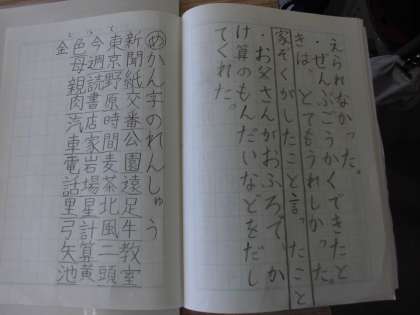 えられなかった。
・ぜんぶごうかくできたと
きは、とてもうれしかった。
家ぞくがしたこと言ったこと
・お父さんがおふろで、か
け算のもんだいなどをだし
てくれた。
め かん字のれんしゅう
新聞紙交番公園遠足牛教室
東京野原時間麦茶北風二頭
今週読書店家岩場星計算黄
色母親肉汽車電話里弓矢池
金